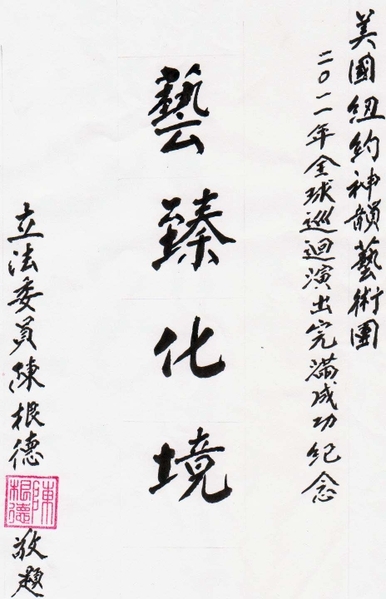 美國紐約神韻藝術團
二〇一一年全球巡迴演出完滿成功紀念
藝臻化境
立法委員陳根德敬題
陳根德